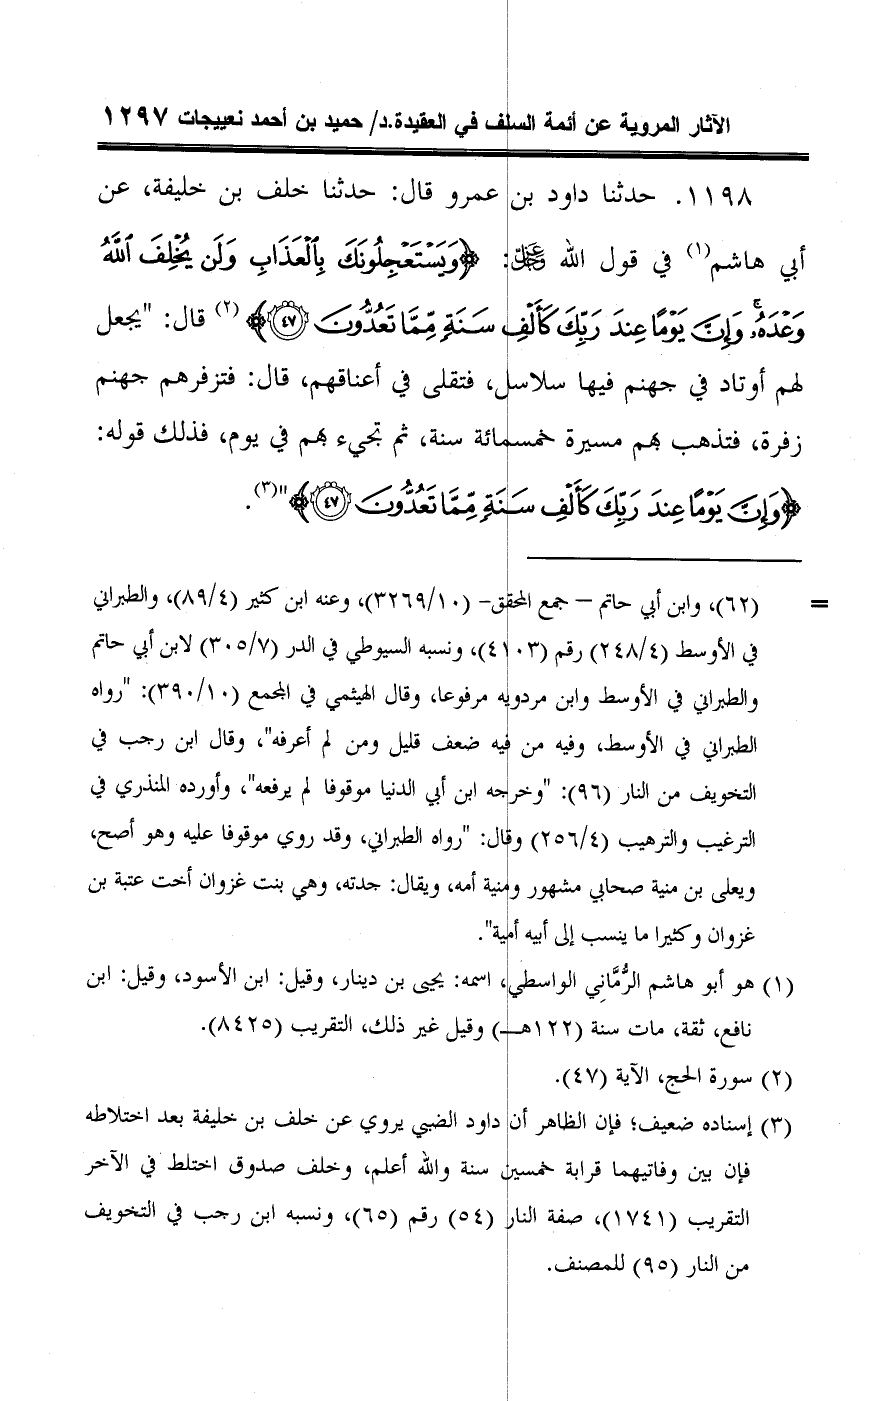 الآثار المروية عن أئمة السلف في العقيدة.د/ حميد بن أحمد نعييجات ١٢٩٧
١١٩٨. حدثنا داود بن عمرو قال: حدثنا خلف بن خليفة، عن
أبي هاشم(١) في قول الله ﷿: ﴿وَيَسْتَعْجِلُونَكَ بِٱلْعَذَابِ وَلَن يُخْلِفَ ٱللَّهُ
وَعْدَهُۥ ۚ وَإِنَّ يَوْمًا عِندَ رَبِّكَ كَأَلْفِ سَنَةٍ مِّمَّا تَعُدُّونَ ٤٧﴾(٢) قال: "يجعل
لهم أوتاد في جهنم فيها سلاسل، فتقلى في أعناقهم، قال: فتزفرهم جهنم
زفرة، فتذهب بهم مسيرة خمسمائة سنة، ثم تجيء بهم في يوم، فذلك قوله:
﴿وَإِنَّ يَوْمًا عِندَ رَبِّكَ كَأَلْفِ سَنَةٍ مِّمَّا تَعُدُّونَ ٤٧﴾"(٣).
= (٦٢)، وابن أبي حاتم – جمع المحقق- (٣٢٦٩/١٠)، وعنه ابن كثير (٨٩/٤)، والطبراني
في الأوسط (٢٤٨/٤) رقم (٤١٠٣)، ونسبه السيوطي في الدر (٣٠٥/٧) لابن أبي حاتم
والطبراني في الأوسط وابن مردويه مرفوعا، وقال الهيثمي في المجمع (٣٩٠/١٠): "رواه
الطبراني في الأوسط، وفيه من فيه ضعف قليل ومن لم أعرفه"، وقال ابن رجب في
التخويف من النار (٩٦): "وخرجه ابن أبي الدنيا موقوفا لم يرفعه"، وأورده المنذري في
الترغيب والترهيب (٢٥٦/٤) وقال: "رواه الطبراني، وقد روي موقوفا عليه وهو أصح،
ويعلى بن منية صحابي مشهور ومنية أمه، ويقال: جدته، وهي بنت غزوان أخت عتبة بن
غزوان وكثيرا ما ينسب إلى أبيه أمية".
(١) هو أبو هاشم الرُّمَّاني الواسطي، اسمه: يحيى بن دينار، وقيل: ابن الأسود، وقيل: ابن
نافع، ثقة، مات سنة (١٢٢هـ) وقيل غير ذلك، التقريب (٨٤٢٥).
(٢) سورة الحج، الآية (٤٧).
(٣) إسناده ضعيف؛ فإن الظاهر أن داود الضبي يروي عن خلف بن خليفة بعد اختلاطه
فإن بين وفاتيهما قرابة خمسين سنة والله أعلم، وخلف صدوق اختلط في الآخر
التقريب (١٧٤١)، صفة النار (٥٤) رقم (٦٥)، ونسبه ابن رجب في التخويف
من النار (٩٥) للمصنف.